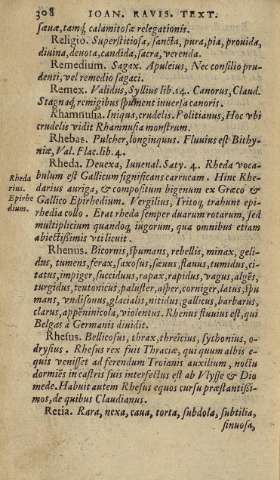 308 IOAN. RAVIS. TEXT.
sæuæ, tamq́; calamitosæ relegationis.
Religio. Superstitiosa, sancta, pura, pia, prouida,
diuina, deuota, candida, sacra, verenda.
Remedium. Sagax. Apuleius, Nec consilio pru-
denti, vel remedio sagaci.
Remex. Validus, Syllius lib. 14. Canorus, Claud.
Stagnaq́; remigibus spument inuersa canoris.
Rhamnusia. Iniqua, crudelis. Politianus, Hoc vbi
crudelis vidit Rhamnusia monstrum.
Rhebas. Pulcher, longinquus. Fluuius est Bithy-
niæ, Val. Flac. lib. 4.
Rheda. Deuexa, Iuuenal. Saty. 4. Rheda voca-
bulum est Gallicum significans carrucam. Hinc Rhe-
darius auriga, & compositum bigenum ex Græco &
Gallico Epirhedium. Vergilius, Tritoq́; trahunt epi-
rhedia collo. Erat rheda semper duarum rotarum, sed
multiplicium quandoq́; iugorum, qua omnibus etiam
abiectissimis vti licuit.
Rheda
rius.
Epirhe
dium.
Rhenus. Bicornis, spumans, rebellis, minax, geli-
dus, tumens, ferax, saxosus, sæuus, flauus, tumidus, ci-
tatus, impiger, succiduus, rapax, rapidus, vagus, algēs,
turgidus, teutonicus, paluster, asper, corniger, latus, spu
mans, vndisonus, glacialis, nitidus, gallicus, barbarus,
clarus, appēninicola, violentus. Rhenus fluuius est, qui
Belgas a Germanis diuidit.
Rhesus. Bellicosus, thrax, threicius, sythonius, o-
drysius. Rhesus rex fuit Thraciæ, qui quum albis e-
quis venisset ad ferendum Troianis auxilium, noctu
dormiēs in castris suis interfectus est ab Vlysse & Dio
mede. Habuit autem Rhesus equos cursu præstantissi-
mos, de quibus Claudianus.
Retia. Rara, nexa, caua, torta, subdola, subtilia,
sinuosa,